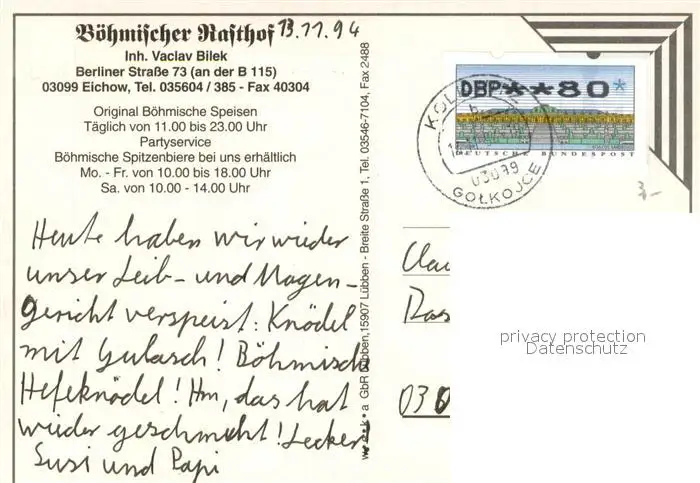 Böhmischer Rasthof 13.11.94
Inh. Vaclav Bilek
Berliner Straße 73 (an der B 115)
03099 Eichow, Tel. 035604 / 385 - Fax 40304
Original Böhmische Speisen
Täglich von 11.00 bis 23.00 Uhr
Partyservice
Böhmische Spitzenbiere bei uns erhältlich
Mo. - Fr. von 10.00 bis 18.00 Uhr
Sa. von 10.00 - 14.00 Uhr
Heute haben wir wieder
unser Leib- und Magen-
gericht verspeist: Knödel
mit Gulasch! Böhmisch
Hefeknödel! Hm, das hat
wieder geschmeckt! Lecker!
Susi und Papi
GbR Lübben, 15907 Lübben - Breite Straße 1, Tel. 03546-7104, Fax 2488
DBP**80*
DEUTSCHE BUNDESPOST
b
03099
GOŁKOJCE
3,-
Clau
03
privacy protection
Datenschutz